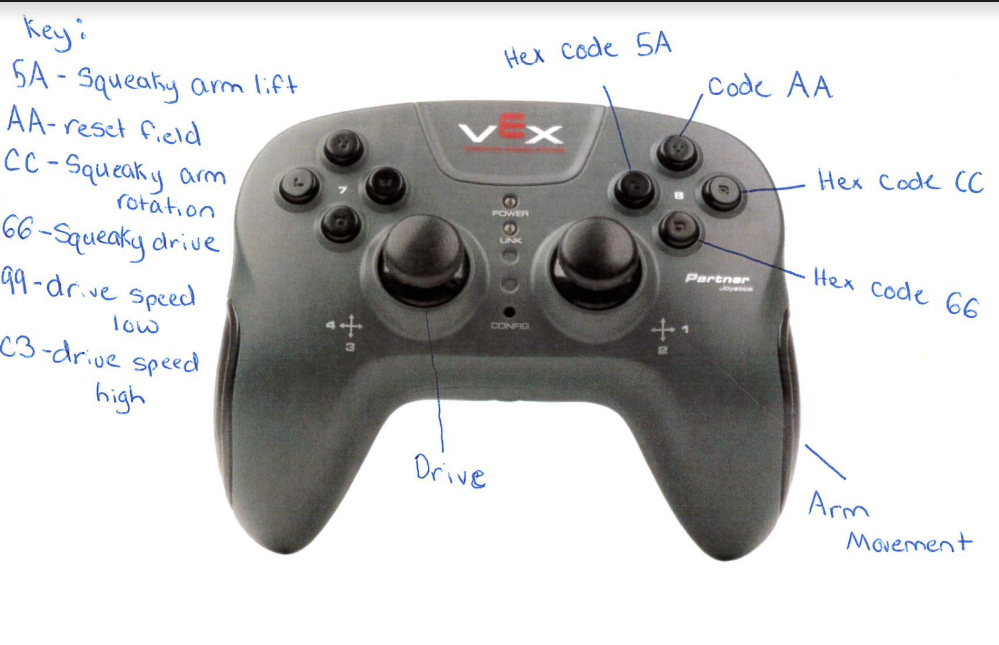 Key:
5A - Squeaky arm lift
AA - reset field
CC - Squeaky arm
rotation
66 - Squeaky drive
99 - drive speed
low
C3 - drive speed
high
Hex code 5A
Code AA
Hex Code CC
Hex Code 66
Drive
Arm
Movement
VEX
7
8
POWER
LINK
CONFIG
Partner
Joystick
4
3
1
2